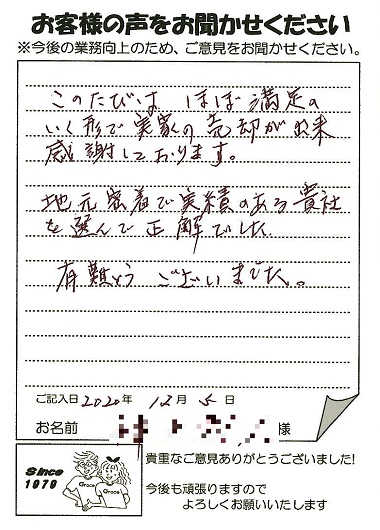 お客様の声をお聞かせください
※今後の業務向上のため、ご意見をお聞かせください。
このたびは ほぼ満足の
いく形で実家の売却が出来
感謝しております。
地元密着で実績のある貴社
を選んで正解でした
有難とうございました。
ご記入日 2020年 12月 5日
お名前 様
Since
1979
Grace
Grace
貴重なご意見ありがとうございました!
今後も頑張りますので
よろしくお願いいたします